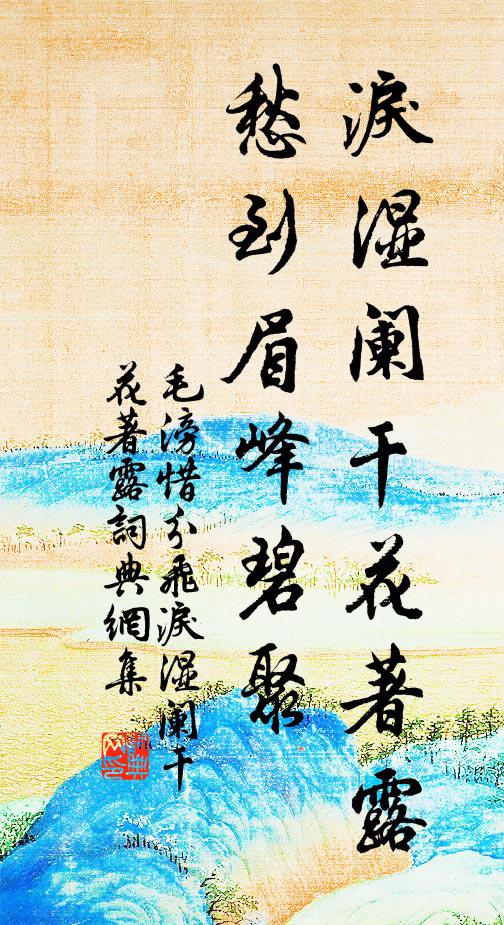 淚濕阑干花著露
愁到眉峰碧聚
毛滂惜分飛淚濕阑干
花著露詞典網集